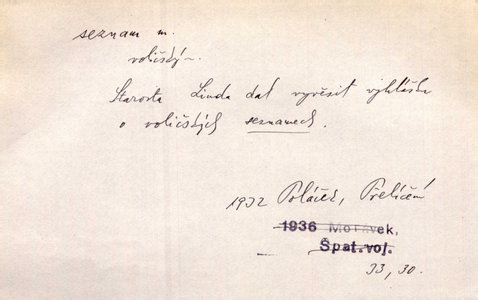 seznam m.
voličský~.
Starosta Linda dal vyvěsit vyhlášku
o voličských seznamech.
1932 Poláček, Přelíčení
1936 Morávek,
Špat.voj.
33, 30.